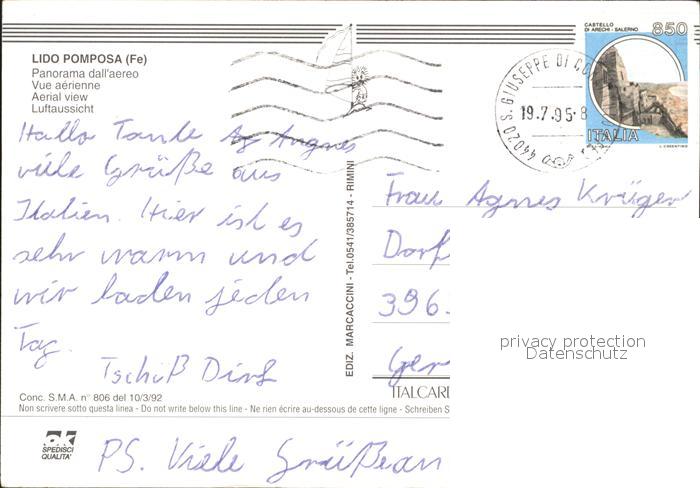 LIDO POMPOSA (Fe)
Panorama dall'aereo
Vue aérienne
Aerial view
Luftaussicht
CASTELLO
DI ARECHI - SALERNO
850
ITALIA
44020 S. GIUSEPPE DI CO
19.7.95-8
Hallo Tante Ag Angnes
viele Grüße aus
Italien. Hier ist es
sehr warm und
wir baden jeden
Tag.
Tschüß Dirk
EDIZ. MARCACCINI - Tel.0541/385714 - RIMINI
Frau Agnes Krüger
Dorf
396
Ger
privacy protection
Datenschutz
ITALCAR
Conc. S.M.A. n° 806 del 10/3/92
Non scrivere sotto questa linea - Do not write below this line - Ne rien écrire au-dessous de cette ligne - Schreiben S
ok
SPEDISCI
QUALITA'
PS. Viele Grüßean